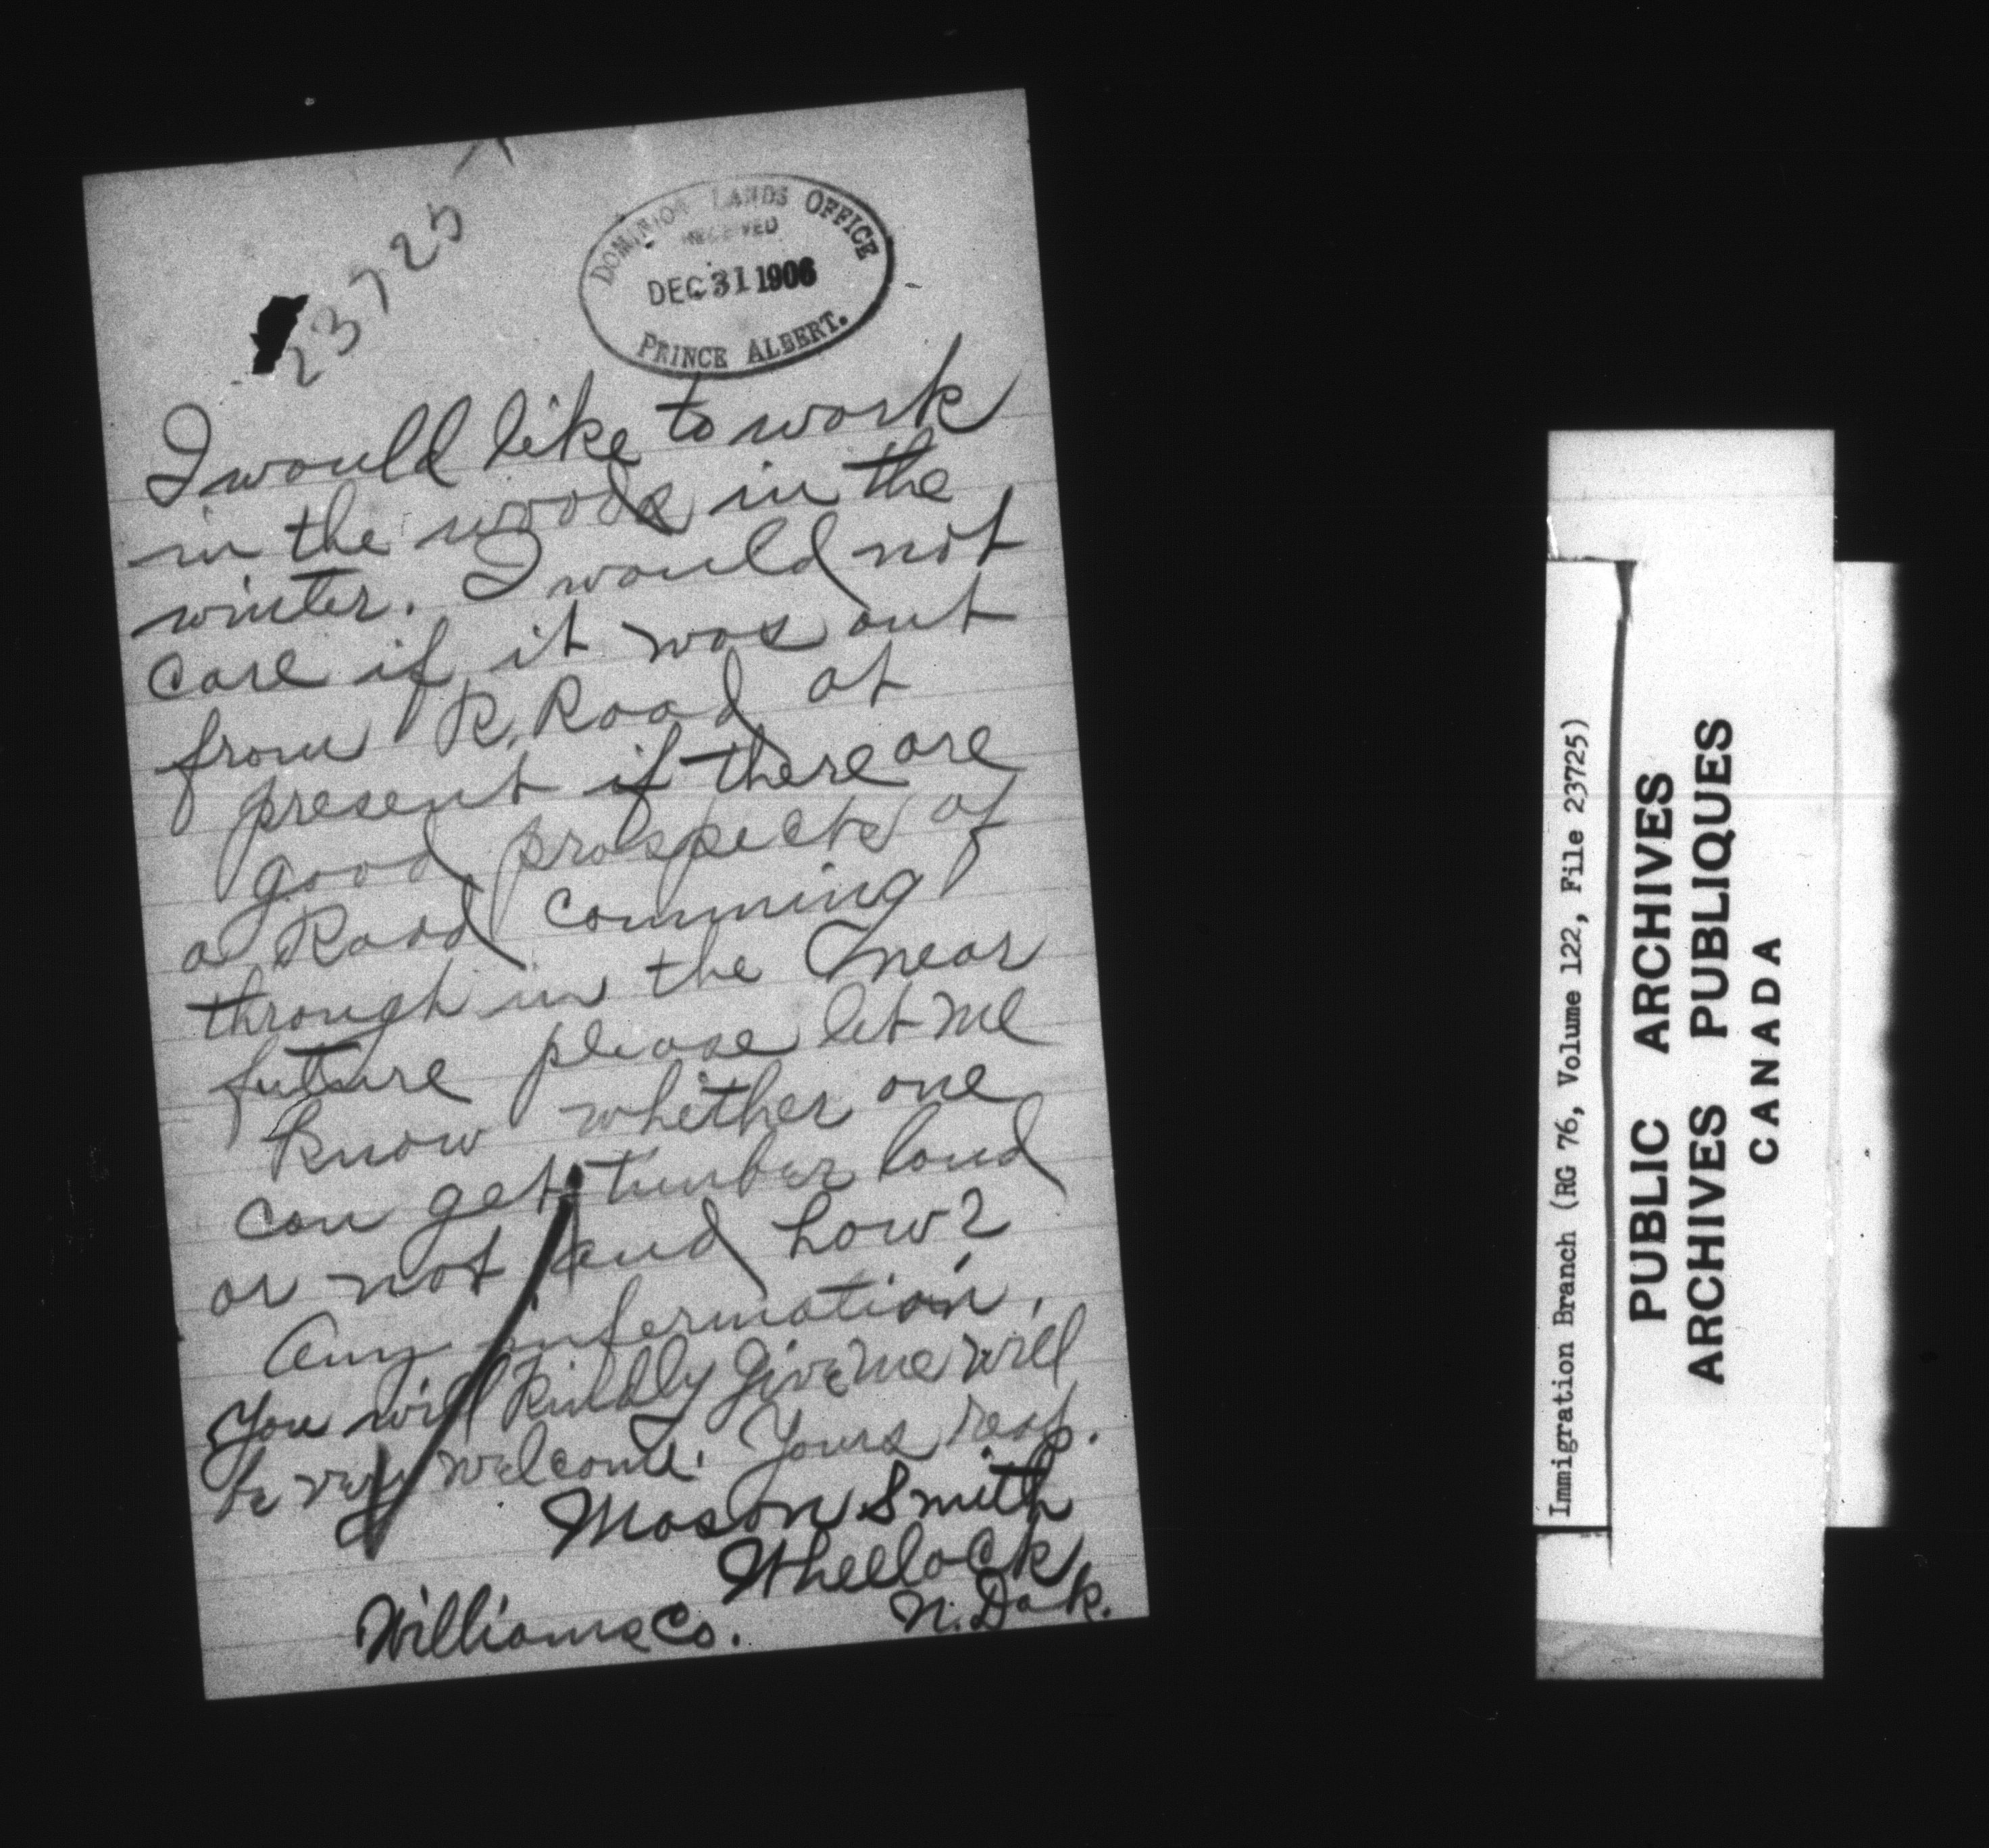 23725
DOMINION LANDS OFFICE
RECEIVED
DEC 31 1906
PRINCE ALBERT.
I would like to work
in the woods in the
winter. I would not
care if it was out
from R. Road at
present if there are
good prospects of
a Road comming
through in the near
future please let me
know whether one
can get timber land
or not and how?
Any information,
you will kindly give me will
be very welcome. Yours resp.
Mason Smith
Wheelock
Williams Co. N. Dak.
Immigration Branch (RG 76, Volume 122, File 23725)
PUBLIC ARCHIVES
ARCHIVES PUBLIQUES
CANADA